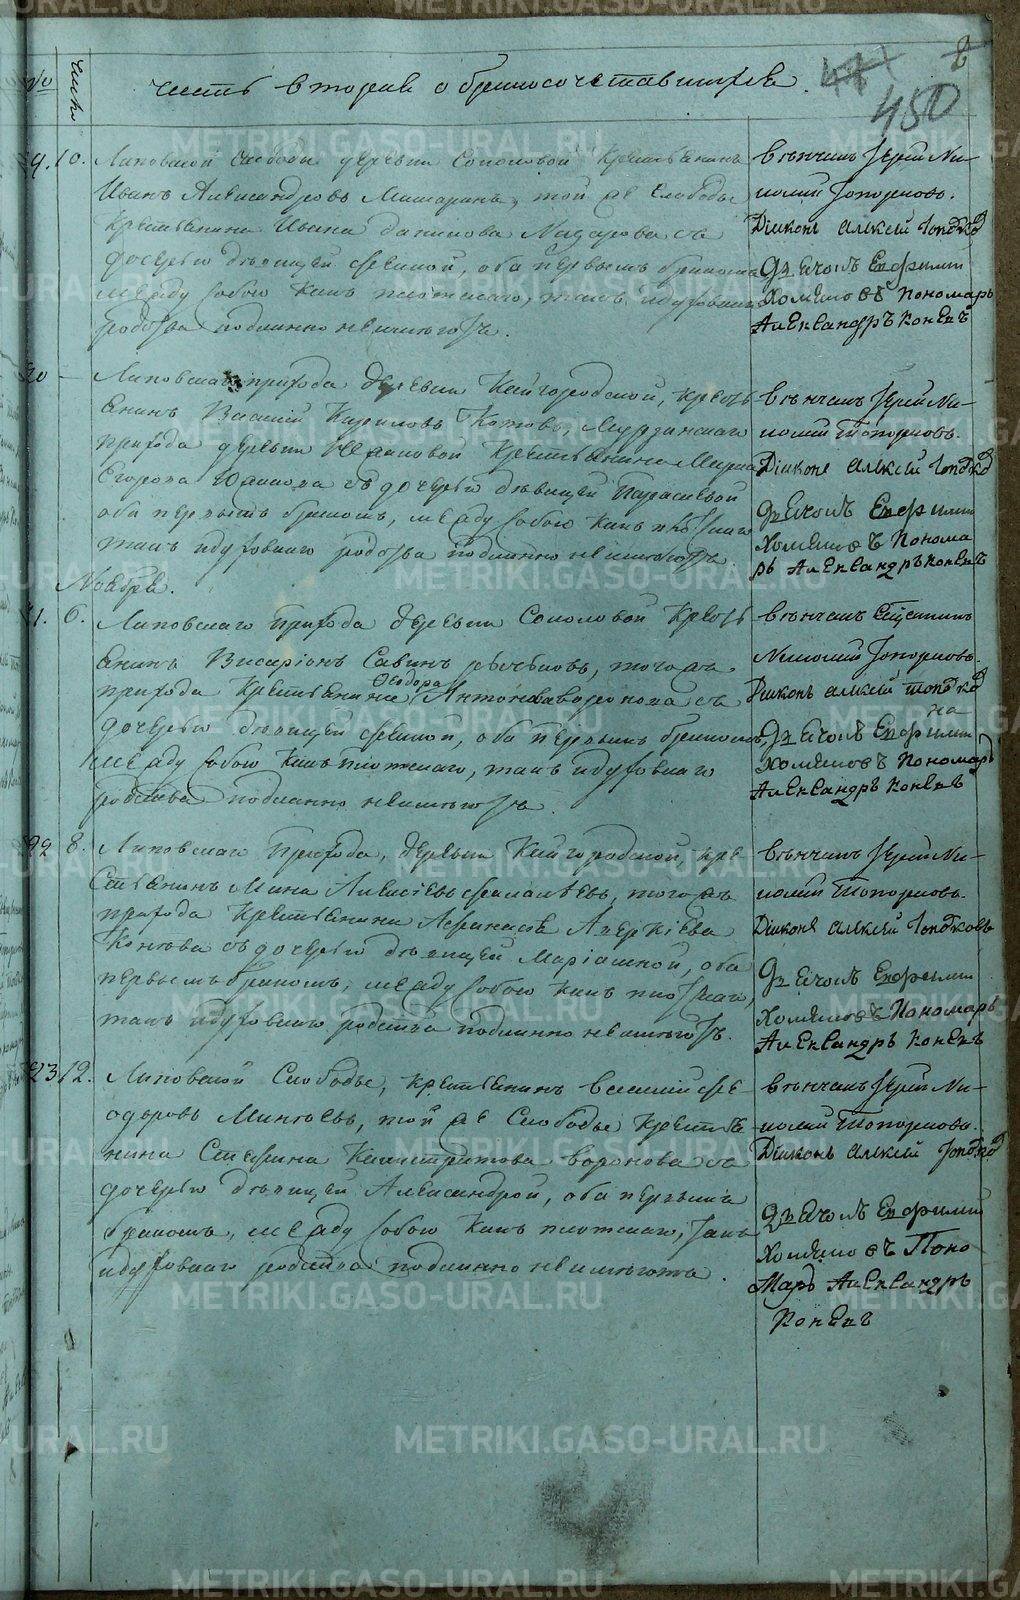 Часть вторая о бракосочетавшихся.
450
№
числа
19. 10. Липовской слободы деревни Соколовой Крестьянинъ
Иванъ Александровъ той же Слободы
Крестьянина Ивана Данилова съ
дочерью дѣвицей оба первымъ бракомъ
между собою какъ плотскаго, такъ и духовнаго
родства подлинно неимѣютъ.
Вѣнчалъ Іерей Ни-
колай Топорковъ.
Діаконъ Алексѣй Попковъ
Дьячокъ Евфимій
Хомяковъ Пономарь
Александръ Коневъ
20 — Липовскаго прихода деревни Кайгородской, кресть
янинъ Василій Кириловъ Мурзинскаго
прихода деревни Крестьянина
Егорова съ дочерью дѣвицей Параскевой
оба первымъ бракомъ, между собою какъ плотскаго
такъ и духовнаго родства подлинно неимѣютъ.
Вѣнчалъ Іерей Ни-
колай Топорковъ.
Діаконъ Алексѣй Попковъ
Дьячокъ Евфимій
Хомяковъ Понома
рь Александръ Коневъ
Ноября.
21. 6. Липовскаго прихода деревни Соколовой Кресть
янинъ Висаріонъ Савинъ того же
прихода Крестьянина Ѳеодора Антонова съ
дочерью дѣвицей оба первымъ бракомъ,
между собою какъ плотскаго, такъ и духовнаго
родства подлинно неимѣютъ.
Вѣнчалъ
Николай Топорковъ.
Діаконъ Алексѣй Попковъ
Дьячокъ Евфимій
Хомяковъ Пономарь
Александръ Коневъ
22 8. Липовскаго Прихода, деревни Кайгородской, кре
стьянинъ Мина Алексѣевъ того жъ
прихода Крестьянина Афанасія Аверкіева
съ дочерью дѣвицей Маріамной, оба
первымъ бракомъ, между собою какъ плотскаго,
такъ и духовнаго родства подлинно неимѣютъ.
Вѣнчалъ Іерей Ни-
колай Топорковъ.
Діаконъ Алексѣй Попковъ
Дьячокъ Евфимій
Хомяковъ Пономарь
Александръ Коневъ
23 12. Липовской Слободы, крестьянинъ Василій Ѳе
одоровъ той же Слободы Крестья
нина Стефана Каллистратова Воронова съ
дочерью дѣвицей Александрой, оба первымъ
бракомъ, между собою какъ плотскаго, такъ
и духовнаго родства подлинно неимѣютъ.
Вѣнчалъ Іерей Ни-
колай Топорковъ.
Діаконъ Алексѣй Попковъ
Дьячокъ Евфимій
Хомяковъ Поно
марь Александръ
Коневъ
METRIKI.GASO-URAL.RU